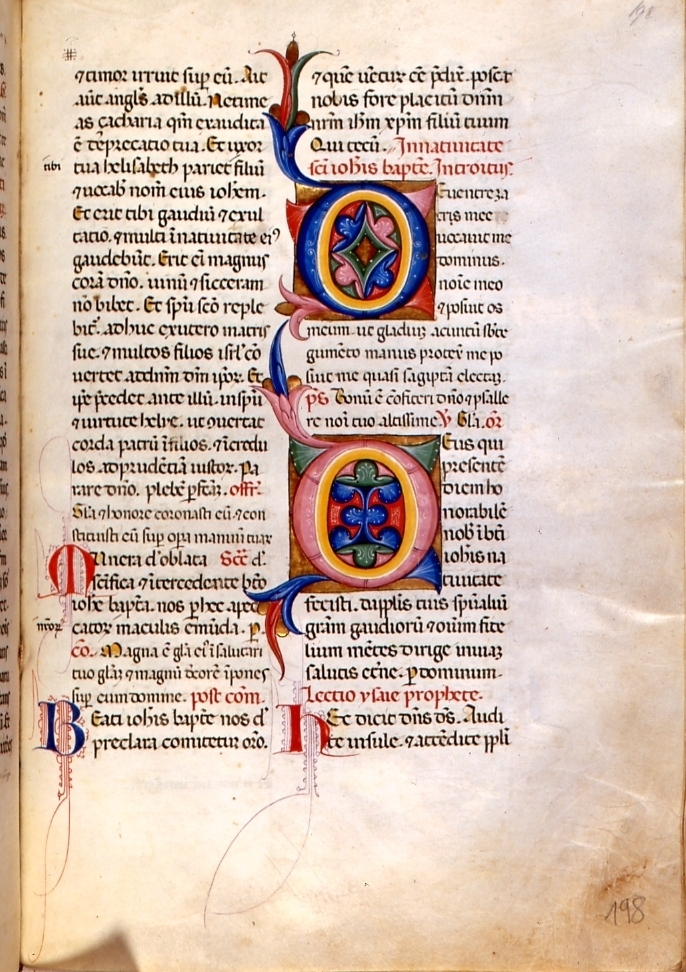 ⁊ timor irruit sup̄ eū. Ait
aūt angl̄s ad illū. Ne time
as çacharia qm̄ exaudita
ē deprecatio tua. Et uxor
tibi
tua helisabeth pariet filiū
⁊ uocab̄ nom̄ eius ioh̄em.
Et erit tibi gaudiū ⁊ exul
tatio. ⁊ multi ī natiuitate eiꝰ
gaudebūt. Erit eī magnus
corā dn̄o. uinū ⁊ siceram
nō bibet. Et sp̄u sc̄o reple
bit̄. adhuc ex utero matris
sue. ⁊ multos filios isrl̄ cō
uertet ad dn̄m dm̄ ip̄oꝝ. Et
ip̄e p̄cedet ante illū. in sp̄u
⁊ uirtute helye. ut ɔuertat
corda patrū ī filios. ⁊ īcredu
los. ad prudētiā iustoꝝ. Pa
rare dn̄o. plebē ꝑfcā̄ꝫ. offr̄.
Gl̄a ⁊ honore coronasti eū ⁊ con
stituisti eū sup̄ oꝑa manuū tuaꝝ
Munera d̄ oblata Scē d̄.
sc̄ifica ⁊ intercedente bt̄o
ioh̄e bapt̄a. nos ꝑ hec a pec
catoꝝ maculis emūda. ꝑ.
co. Magna ē gl̄a eiꝰ ī salutari
tuo gl̄aꝫ ⁊ magnū decorē īpones
sup̄ eum domine. post com̄.
Beati ioh̄is bapt̄e nos d̄
preclara comitetur or̄o.
⁊ que uētuꝝ eē p̄dix̄. poscat
nobis fore placitū dn̄m
nr̄m ih̄m xp̄m filiū tuum
Qui tecū. In natiuitate
sc̄i ioh̄is bapt̄e. Introitus.
De uentre ma
tris mee
uocauit me
dominus.
noīe meo
⁊ posuit os
meum. ut gladiuꝫ acutū sb̄te
gumēto manus protex̄ me po
suit me quasi sagiptā electaꝫ.
p̄s Bonū ē cōfiteri dn̄o ⁊ psalle
re noī tuo altissime. V Gl̄a. or̄
Deus qui
presentē
diem ho
norabilē
nob̄ ī bt̄i
ioh̄is na
tiuitate
fecisti. da pplīs tuis sp̄ualiū
gr̄am gaudioꝝ ⁊ oīum fide
lium mētes dirige in uiaꝫ
salutis et̄ne. ꝑ dominum.
Lectio ysaie prophete.
Hec dicit dn̄s d̄s. Audi
te insule. ⁊ attēdite ppli
198